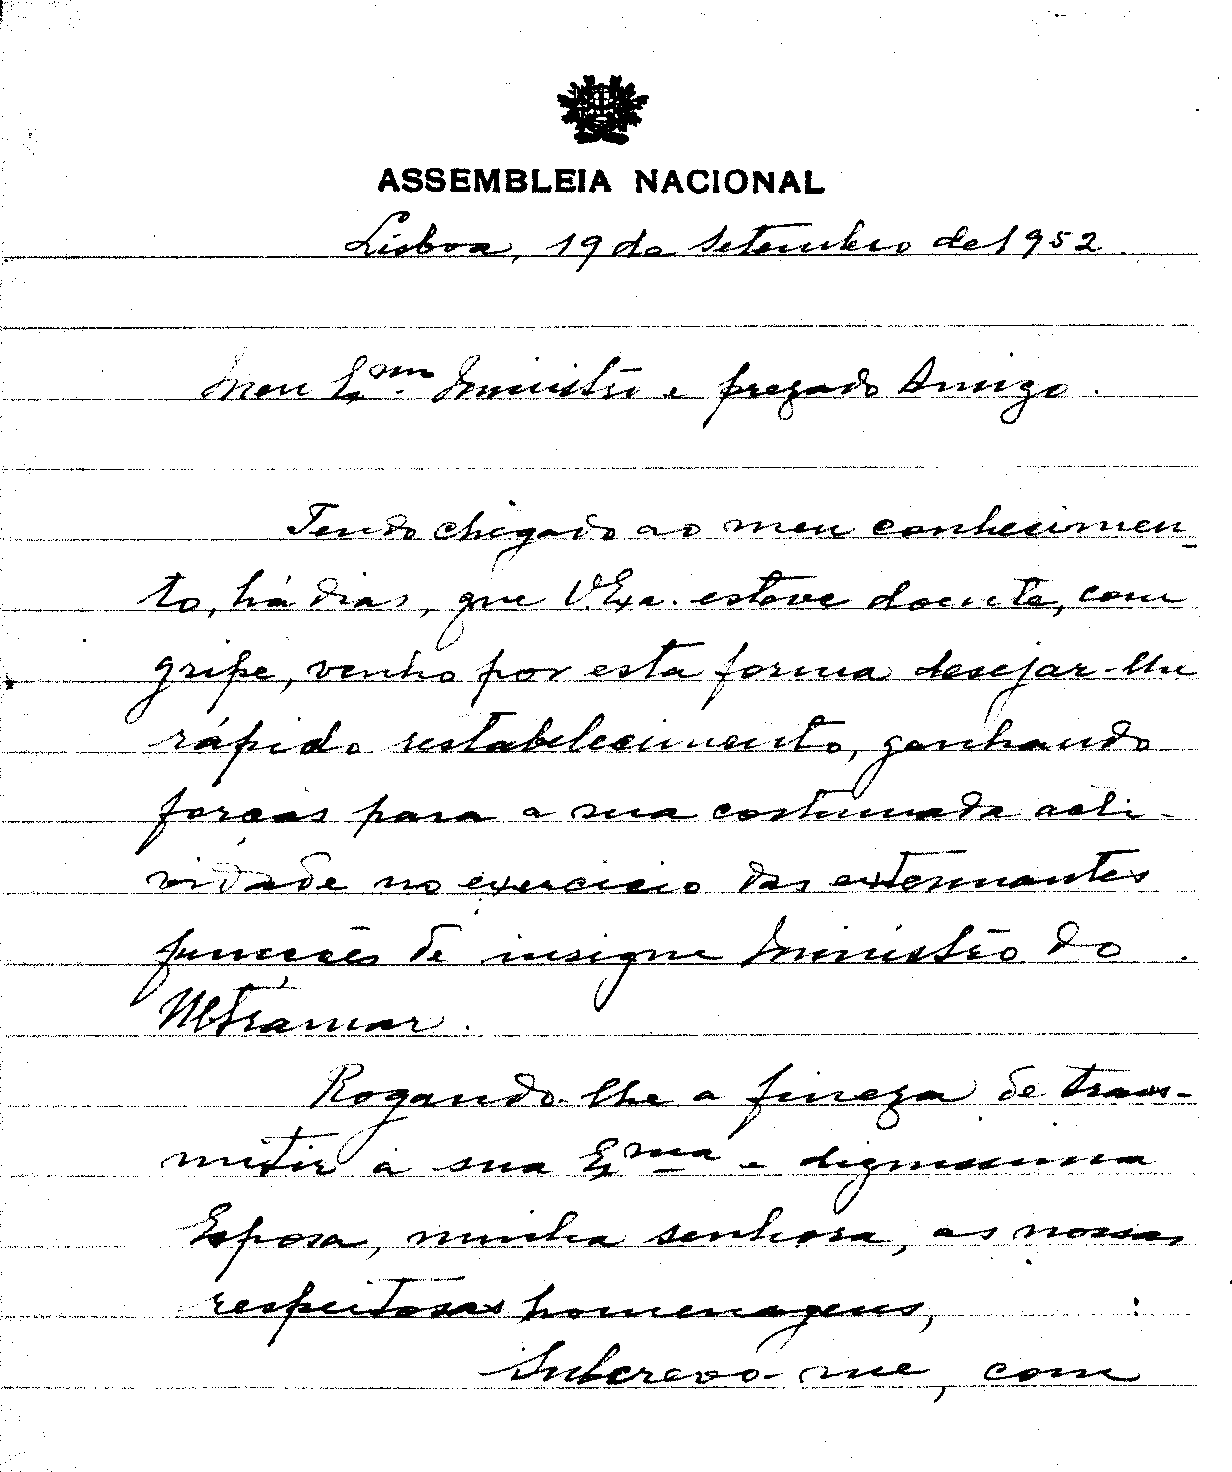 ASSEMBLEIA NACIONAL
Lisboa, 19 de Setembro de 1952.
Meu Exmo. Ministro e prezado Amigo.
Tendo chegado ao meu conhecimen-
to, há dias, que V. Exa. esteve doente, com
gripe, venho por esta forma desejar-lhe
rápido restabelecimento, ganhando
forças para a sua costumada acti-
vidade no exercício das extenuantes
funções de insigne Ministro do
Ultramar.
Rogando-lhe a fineza de trans-
mitir à sua Exma e digníssima
Esposa, minha senhora, as nossas
respeitosas homenagens,
Subcrevo-me, com